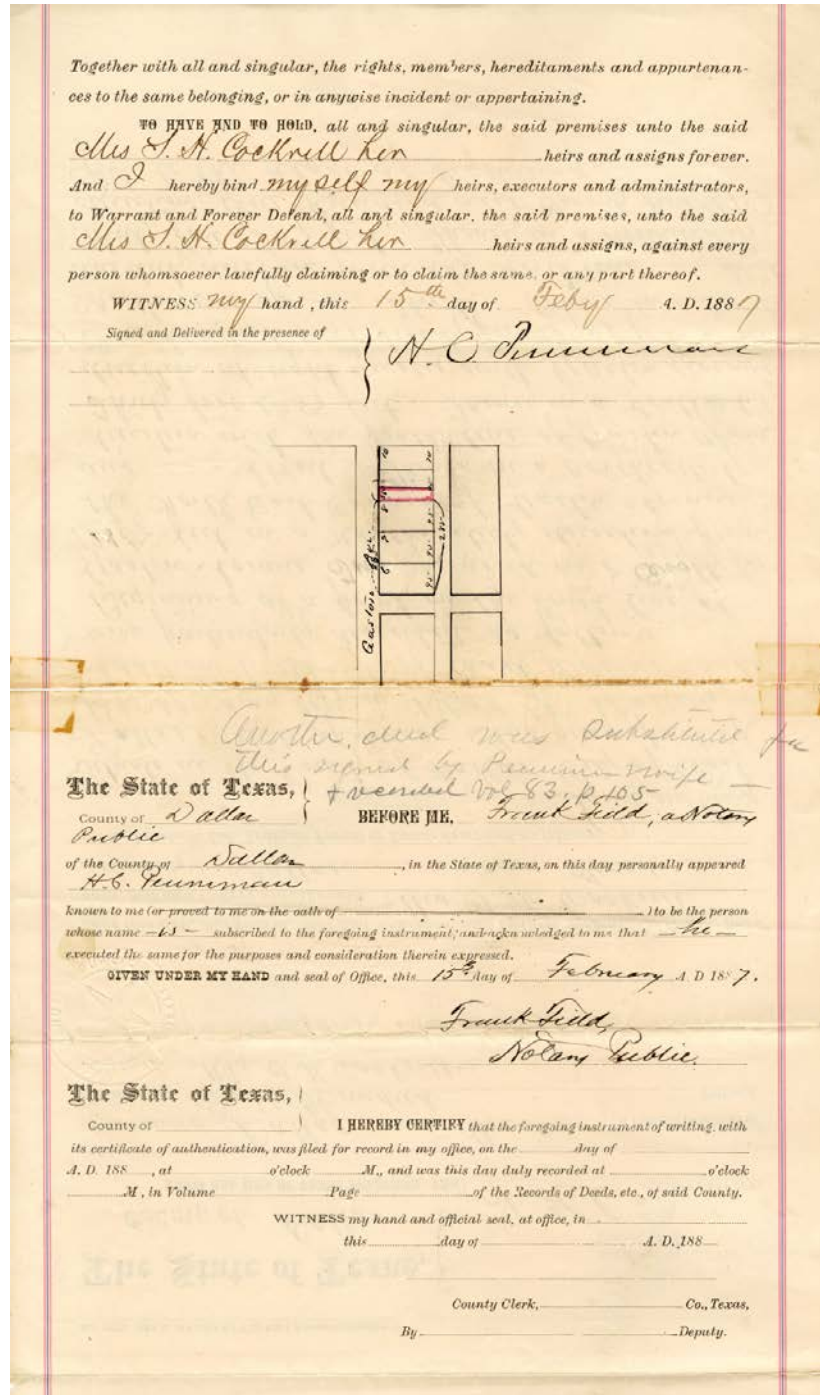 Together with all and singular, the rights, members, hereditaments and appurtenan-
ces to the same belonging, or in anywise incident or appertaining.
TO HAVE AND TO HOLD, all and singular, the said premises unto the said
Mrs S. H. Cockrell her heirs and assigns forever.
And I hereby bind myself my heirs, executors and administrators,
to Warrant and Forever Defend, all and singular, the said premises, unto the said
Mrs S. H. Cockrell her heirs and assigns, against every
person whomsoever lawfully claiming or to claim the same, or any part thereof.
WITNESS my hand, this 15th day of Feby A. D. 1887
Signed and Delivered in the presence of
H. C.
Gaston
Another deed was substituted for
this signed by wife
& recorded Vol 83. p 105
The State of Texas,
County of Dallas BEFORE ME, Frank Field, a Notary
Public
of the County of Dallas, in the State of Texas, on this day personally appeared
H. C.
known to me (or proved to me on the oath of ) to be the person
whose name - is - subscribed to the foregoing instrument, and acknowledged to me that - he -
executed the same for the purposes and consideration therein expressed.
GIVEN UNDER MY HAND and seal of Office, this 15th day of February A. D 1887.
Frank Field,
Notary Public.
The State of Texas,
County of I HEREBY CERTIFY that the foregoing instrument of writing, with
its certificate of authentication, was filed for record in my office, on the day of
A. D. 188 , at o'clock M., and was this day duly recorded at o'clock
M , in Volume Page of the Records of Deeds, etc., of said County.
WITNESS my hand and official seal, at office, in
this day of A. D. 188
County Clerk, Co., Texas,
By Deputy.